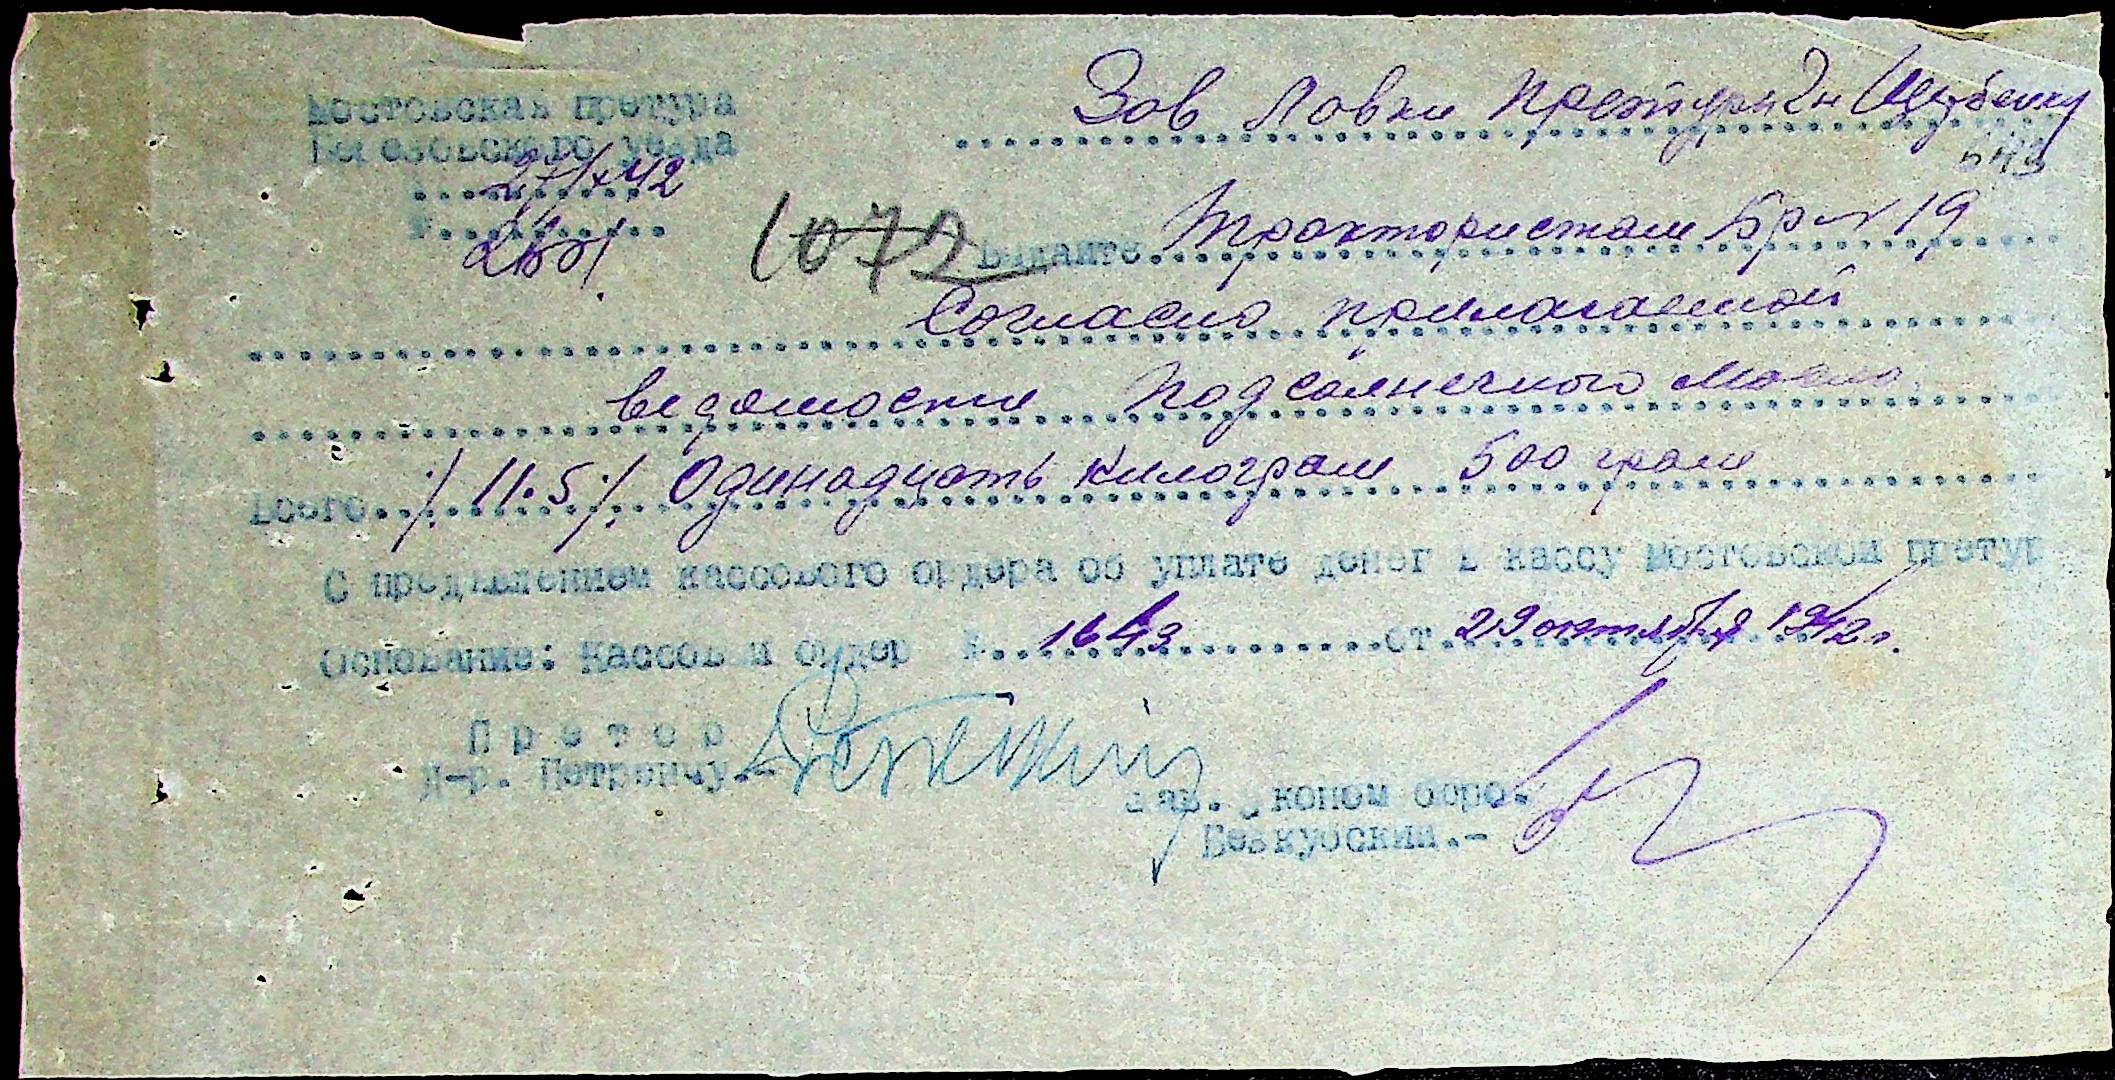 Мостовская претура
Березовского уезда
27/X 42
№
1072
Зав Лавки Претуры Гн
543
Выдайте Трактористам Бр N 19
Согласно прилагаемой
ведомости Подсолнечного Масла
Всего ./ 11.5 /. Одинадцать килограм 500 грам
С предявлением кассового ордера об уплате денег в кассу Мостовской претур
Основание: Кассовый ордер № 1643 от 29 октября 1942 г.
Претор
Д-р. Петренчу.-
Зав. Эконом бюро.